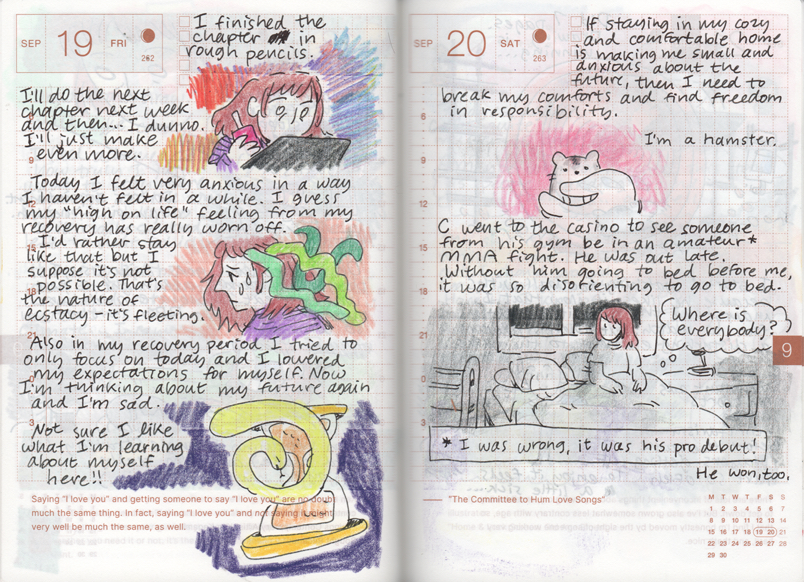 SEP 19 FRI
262
I finished the
chapter in
rough pencils.
I'll do the next
chapter next week
and then... I dunno.
I'll just make
even more.
Today I felt very anxious in a way
I haven't felt in a while. I guess
my "high on life" feeling from my
recovery has really worn off.
I'd rather stay
like that but I
suppose it's not
possible. That's
the nature of
ecstasy - it's fleeting.
Also in my recovery period I tried to
only focus on today and I lowered
my expectations for myself. Now
I'm thinking about my future again
and I'm sad.
Not sure I like
what I'm learning
about myself
here!!
Saying "I love you" and getting someone to say "I love you" are no doubt
much the same thing. In fact, saying "I love you" and not saying it might
very well be much the same, as well.
SEP 20 SAT
263
If staying in my cozy
and comfortable home
is making me small and
anxious about the
future, then I need to
break my comforts and find freedom
in responsibility.
I'm a hamster.
C went to the casino to see someone
from his gym be in an amateur*
MMA fight. He was out late.
Without him going to bed before me,
it was so disorienting to go to bed.
Where is
everybody?
* I was wrong, it was his pro debut!
He won, too.
"The Committee to Hum Love Songs"
6
9
12
15
18
21
0
3
9
M T W T F S S
1 2 3 4 5 6 7
8 9 10 11 12 13 14
15 16 17 18 19 20 21
22 23 24 25 26 27 28
29 30